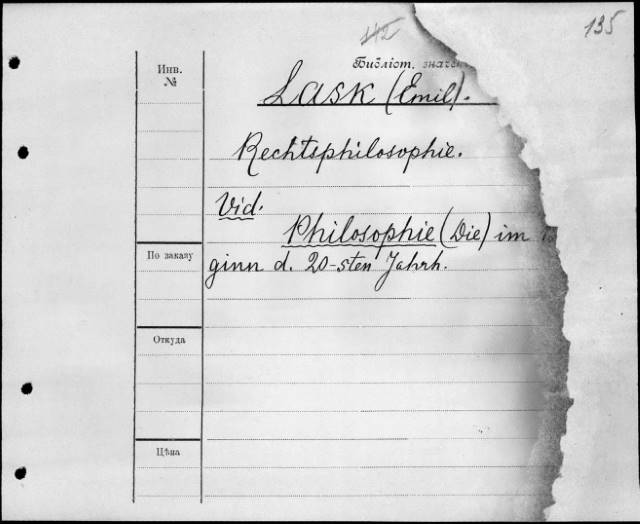 142
135
Библіот. значе
Инв.
№
Lask (Emil).
Rechtsphilosophie.
Vid.
Philosophie (Die) im
ginn d. 20-sten Jahrh.
По заказу
Откуда
Цѣна